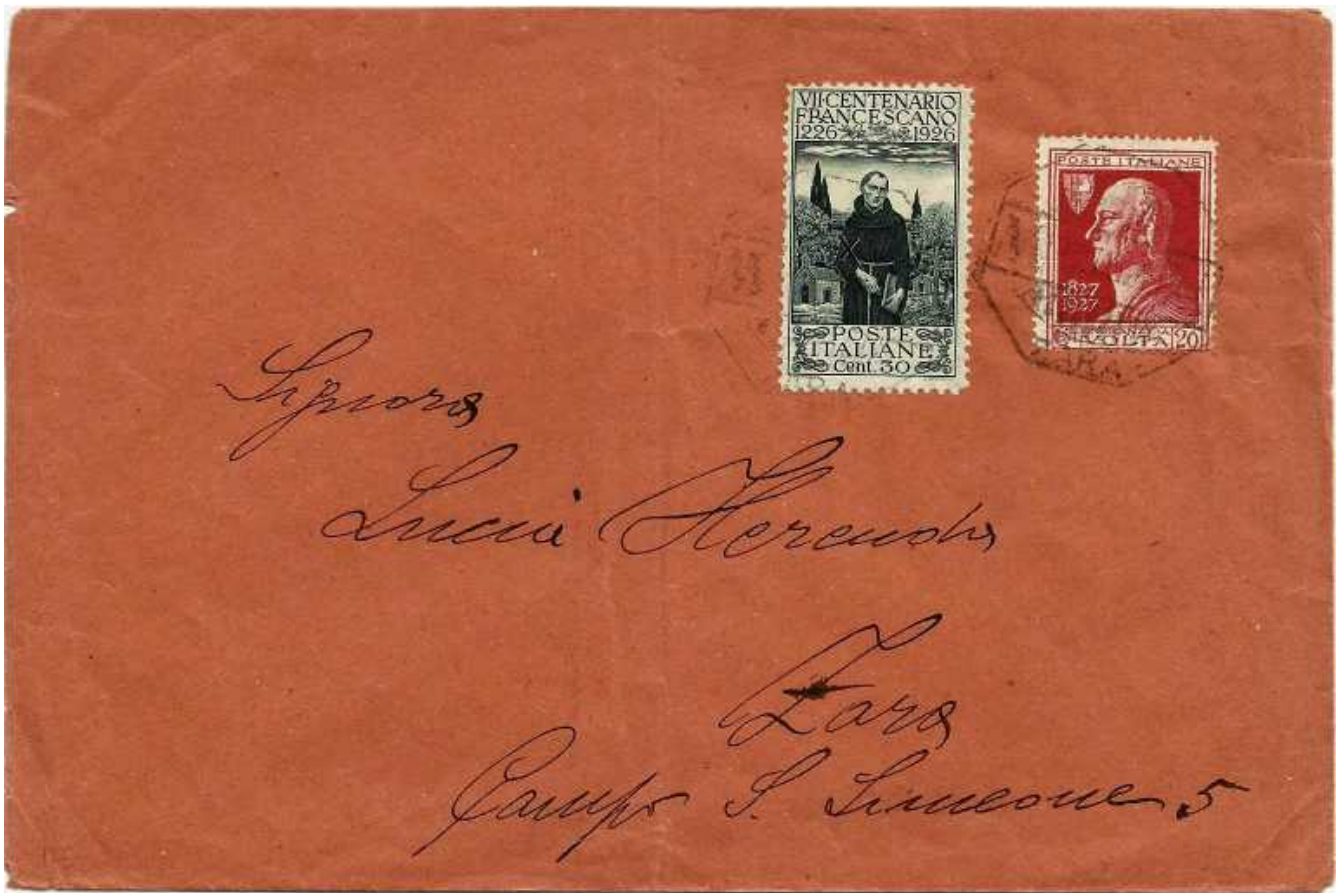 VII·CENTENARIO
FRANCESCANO
1226 1926
POSTE
ITALIANE
Cent. 30
POSTE ITALIANE
1827
1927
VOLTA 20
ZARA
Signora
Lucia
Zara
Campo S. Simeone 5